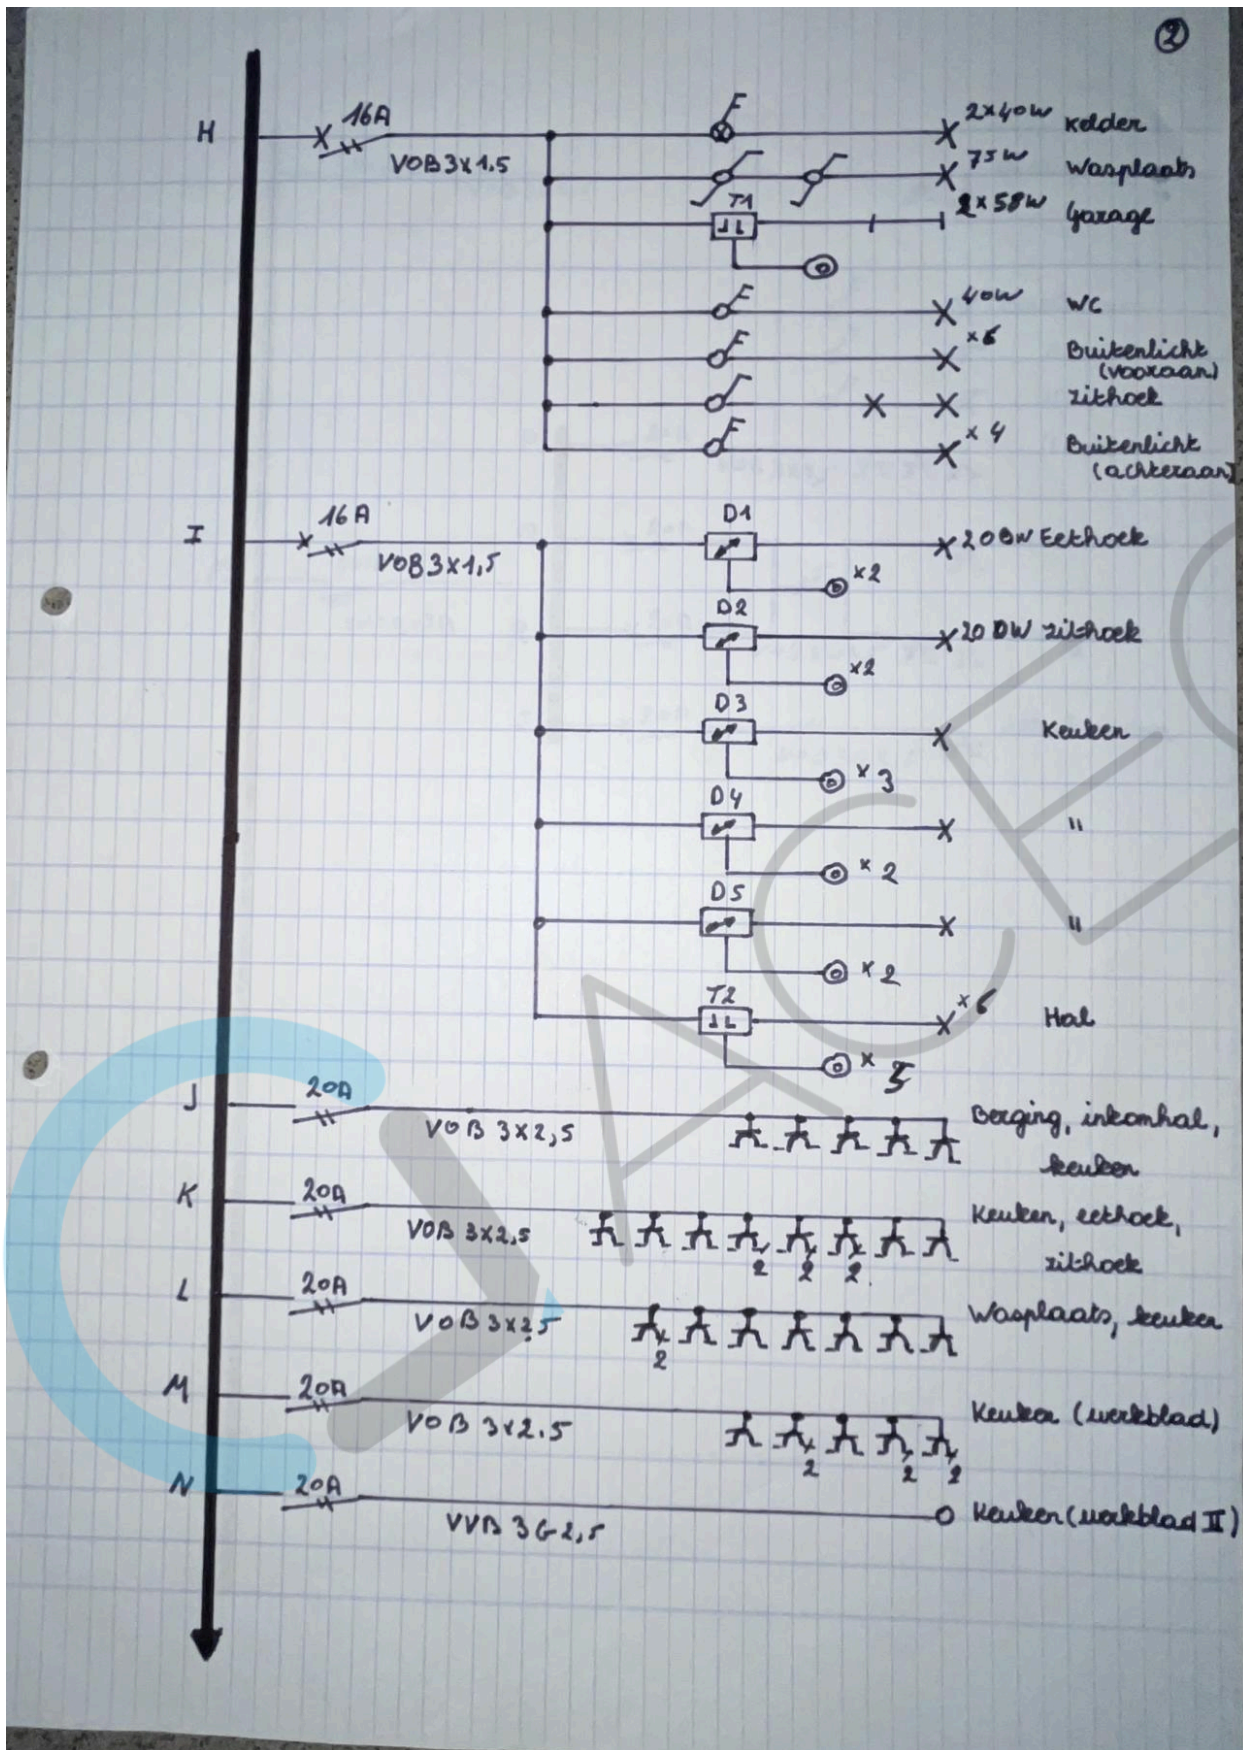 2
H 16A VOB 3x1.5
2x40W Kelder
75W Wasplaats
T1 2x58W Garage
40W WC
x6 Buitenlicht
(vooraan)
Zithoek
x4 Buitenlicht
(achteraan)
I 16A VOB 3x1,5
D1 200W Eethoek
x2
D2 200W Zithoek
x2
D3 Keuken
x3
D4 "
x2
D5 "
x2
T2 x6 Hal
x5
J 20A VOB 3x2,5 Berging, inkomhal,
keuken
K 20A VOB 3x2,5 Keuken, eethoek,
2 2 2 zithoek
L 20A VOB 3x2,5 Wasplaats, keuken
2
M 20A VOB 3x2.5 Keuken (werkblad)
2 2 2
N 20A VVB 3G2,5 Keuken (werkblad II)
ACEG